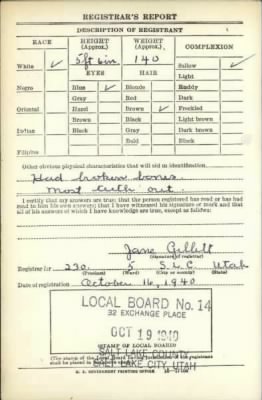 REGISTRAR'S REPORT
DESCRIPTION OF REGISTRANT
RACE
HEIGHT (Approx.)
WEIGHT (Approx.)
COMPLEXION
White ✓
5 ft 6 in.
140
Sallow ✓
EYES
HAIR
Light
Negro
Blue ✓
Blonde
Ruddy
Gray
Red
Dark
Oriental
Hazel
Brown ✓
Freckled
Brown
Black
Light brown
Indian
Black
Gray
Dark brown
Bald
Black
Filipino
Other obvious physical characteristics that will aid in identification
Had broken bones.
Most teeth out.
I certify that my answers are true; that the person registered has read or has had
read to him his own answers; that I have witnessed his signature or mark and that
all of his answers of which I have knowledge are true, except as follows:
Jane Gillett
(Signature of registrar)
Registrar for 230 5 S.L.C. Utah
(Precinct) (Ward) (City or county) (State)
Date of registration October 16, 1940
LOCAL BOARD No. 14
32 EXCHANGE PLACE
OCT 19 1940
STAMP OF LOCAL BOARD
SALT LAKE COUNTY
SALT LAKE CITY, UTAH
(The stamp of the Local Board
shall be placed in
U. S. GOVERNMENT PRINTING OFFICE